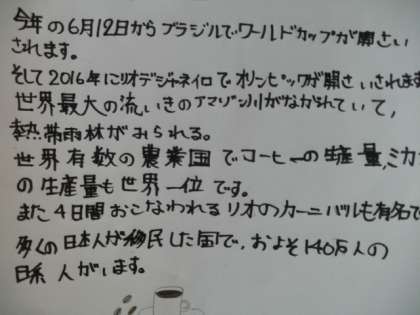 今年の6月12日からブラジルでワールドカップが開さい
されます。
そして2016年にリオデジャネイロでオリンピックが開さいされます
世界最大の流いきのアマゾン川がながられていて、
熱帯雨林がみられる。
世界有数の農業国でコーヒーの生産量、ミカ
の生産量も世界一位です。
また4日間おこなわれるリオのカーニバルも有名で
多くの日本人が移民した国で、およそ140万人の
日系人がいます。